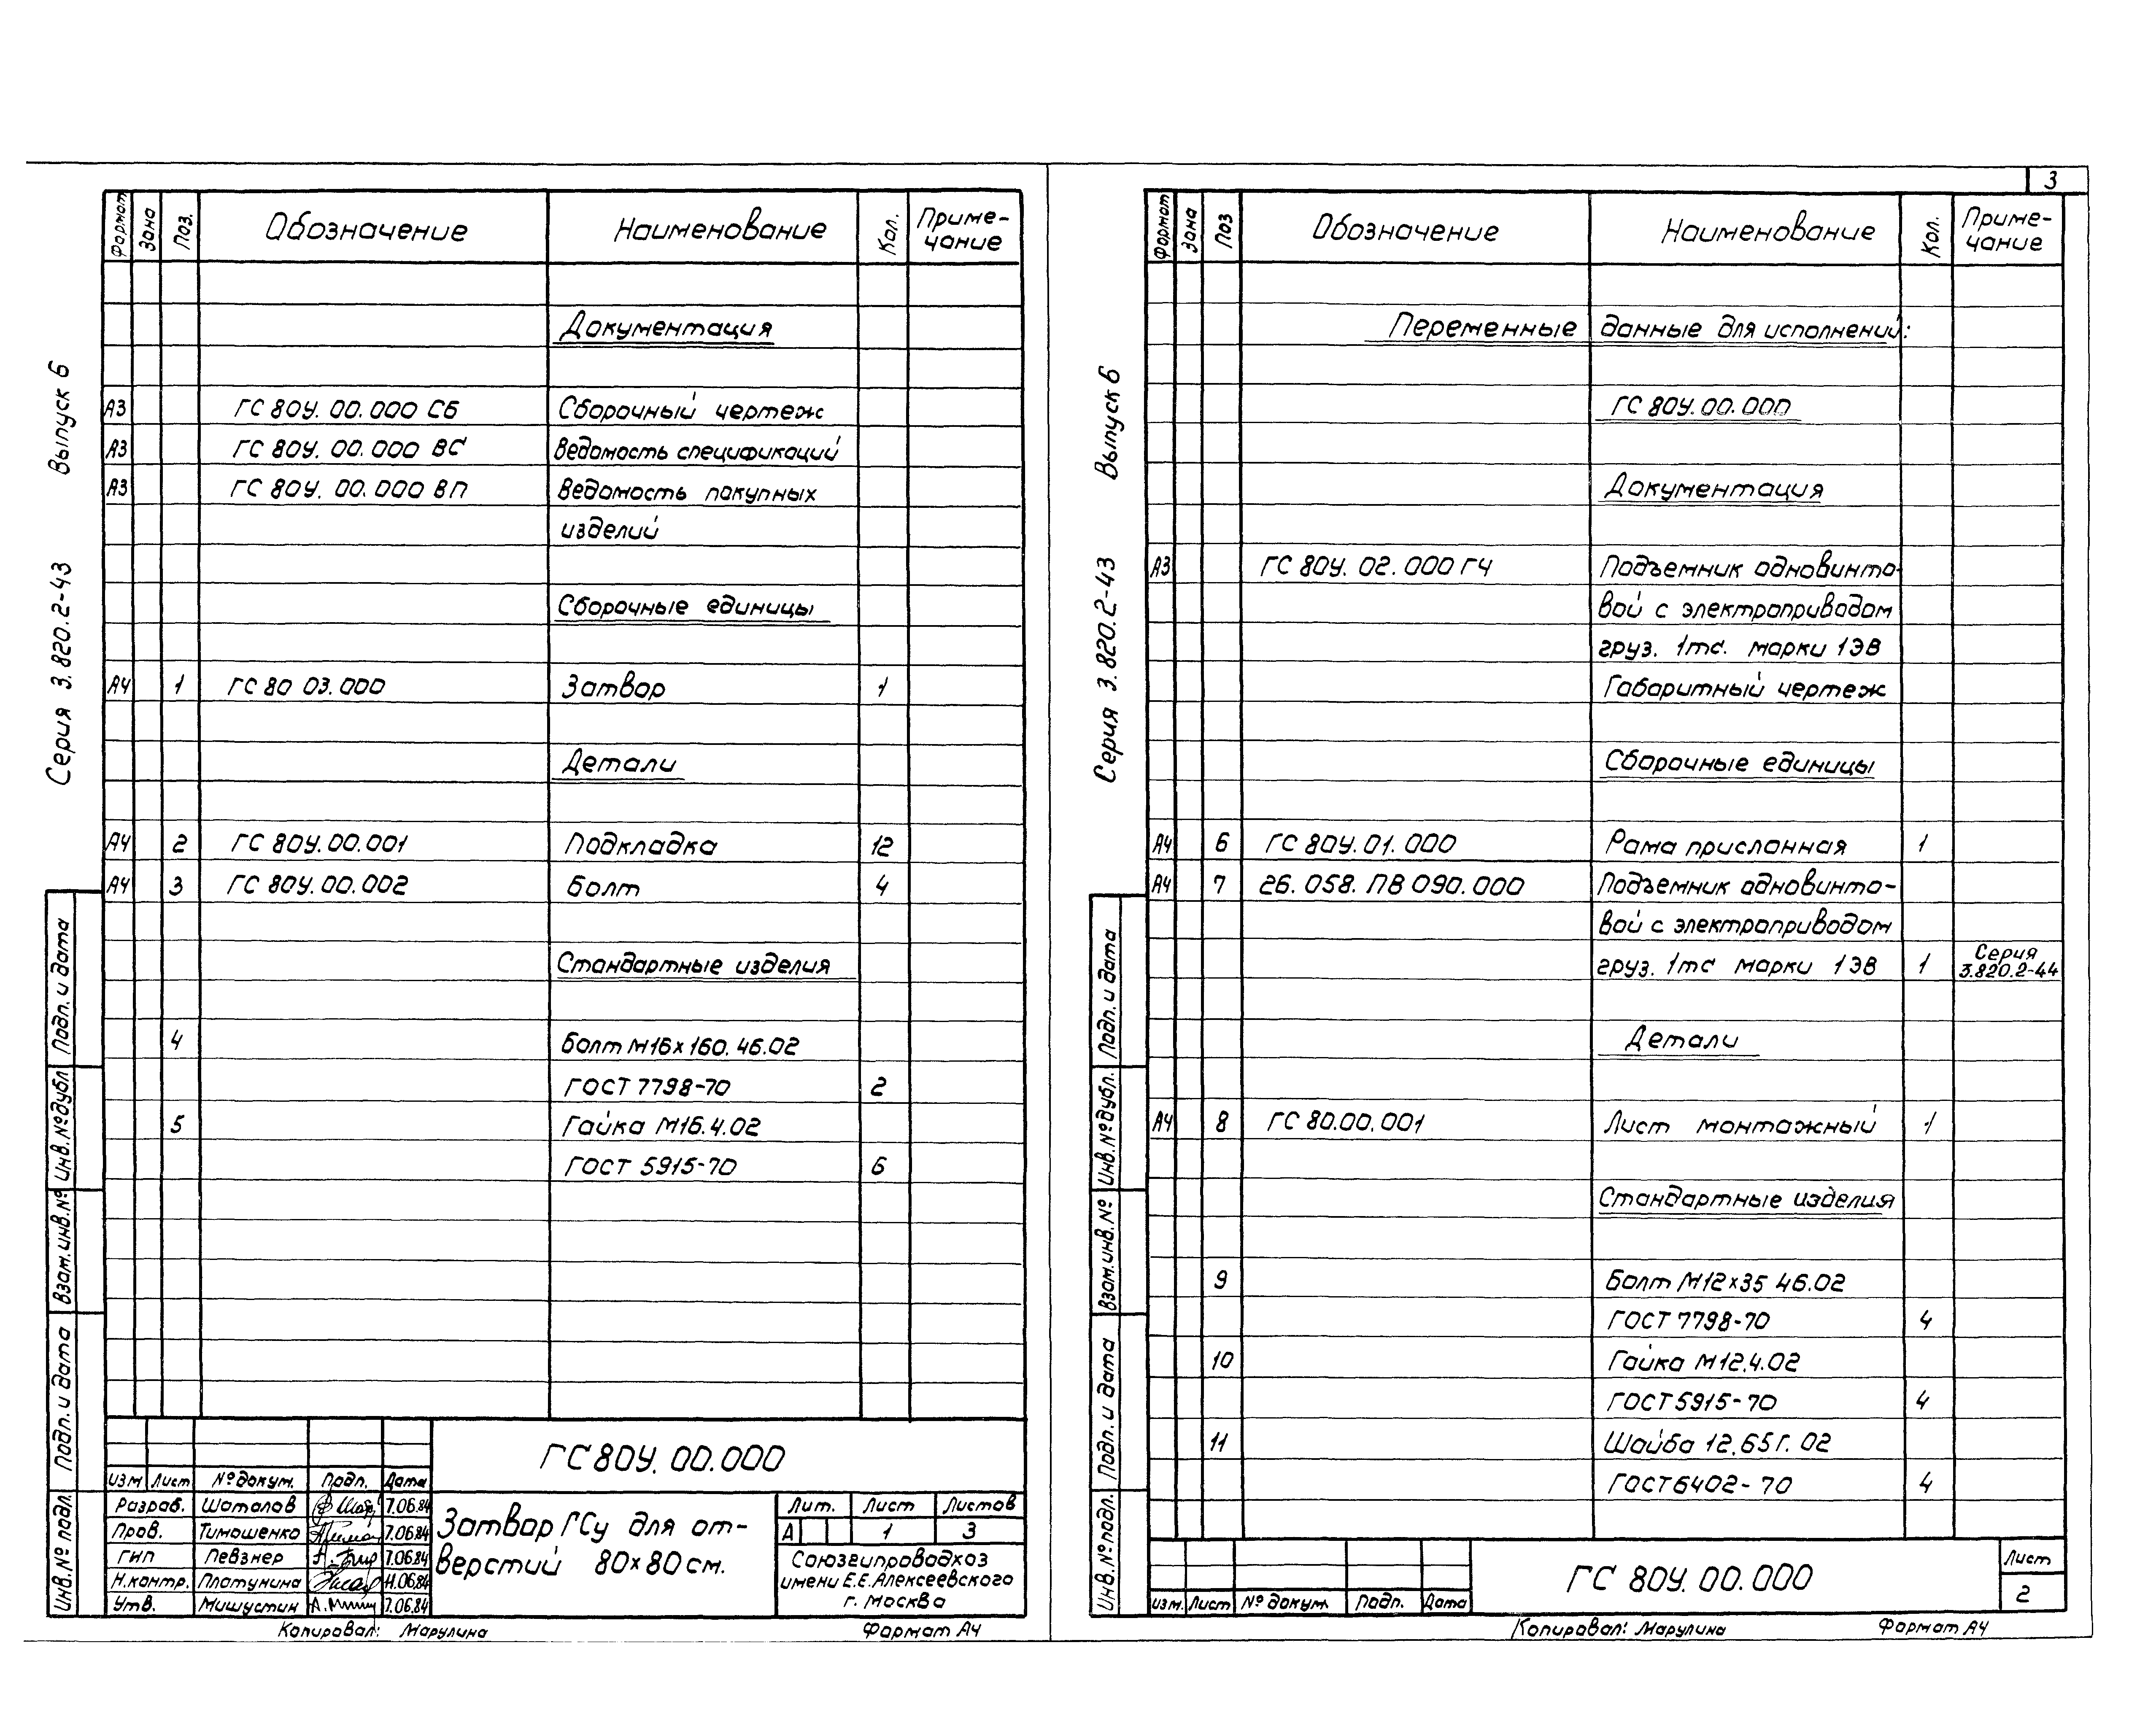 3
Серия 3.820.2-43 Выпуск 6
Формат Зона Поз. Обозначение Наименование Кол. Приме-
чание
Документация
А3 ГС 80У. 00. 000 СБ Сборочный чертеж
А3 ГС 80У. 00. 000 ВС Ведомость спецификаций
А3 ГС 80У. 00. 000 ВП Ведомость покупных
изделий
Сборочные единицы
А4 1 ГС 80 03. 000 Затвор 1
Детали
А4 2 ГС 80У. 00. 001 Подкладка 12
А4 3 ГС 80У. 00. 002 Болт 4
Стандартные изделия
4 Болт М16х160. 46.02
ГОСТ 7798-70 2
5 Гайка М16.4.02
ГОСТ 5915-70 6
Инв.№ подл. Подп. и дата Взам.инв.№ Инв.№ дубл. Подп. и дата
ГС 80У. 00. 000
Изм Лист № докум. Подп. Дата
Разраб. Шаталов 7.06.84
Пров. Тимошенко 7.06.84
ГИП Певзнер 7.06.84
Н.контр. Платунина 11.06.84
Утв. Мишустин 7.06.84
Затвор ГСу для от-
верстий 80х80 см.
Лит. Лист Листов
А 1 3
Союзгипроводхоз
имени Е.Е.Алексеевского
г. Москва
Копировал: Марулина Формат А4
Серия 3.820.2-43 Выпуск 6
Формат Зона Поз Обозначение Наименование Кол. Приме-
чание
Переменные данные для исполнений:
ГС 80У. 00. 000
Документация
А3 ГС 80У. 02. 000 ГЧ Подъемник одновинто-
вой с электроприводом
груз. 1тс. марки 1ЭВ
Габаритный чертеж
Сборочные единицы
А4 6 ГС 80У. 01. 000 Рама прислонная 1
А4 7 26. 058. ПВ 090. 000 Подъемник одновинто-
вой с электроприводом
груз. 1тс марки 1ЭВ 1 Серия
3.820.2-44
Детали
А4 8 ГС 80.00.001 Лист монтажный 1
Стандартные изделия
9 Болт М12х35 46.02
ГОСТ 7798-70 4
10 Гайка М12.4.02
ГОСТ 5915-70 4
11 Шайба 12.65Г. 02
ГОСТ 6402-70 4
Инв.№ подл. Подп. и дата Взам.инв.№ Инв.№ дубл. Подп. и дата
Изм. Лист № докум. Подп. Дата
ГС 80У. 00. 000
Лист
2
Копировал: Марулина Формат А4